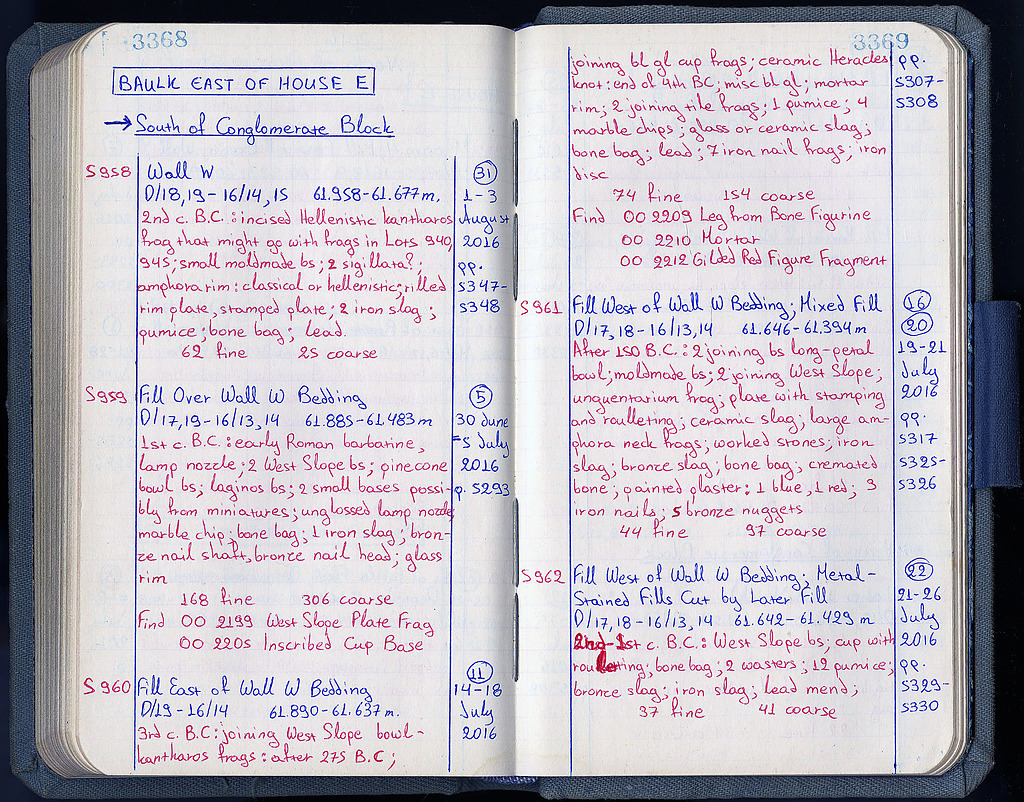 3368
BAULK EAST OF HOUSE E
→ South of Conglomerate Block
S958 Wall W (31)
D/18,19-16/14,15 61.958-61.677m. 1-3
2nd c. B.C.: incised Hellenistic kantharos August
frag that might go with frags in Lots 940, 2016
945; small moldmade bs; 2 sigillata?; pp.
amphora rim: classical or hellenistic; rilled S347-
rim plate, stamped plate; 2 iron slag; S348
pumice; bone bag; lead.
62 fine 25 coarse
S959 Fill Over Wall W Bedding (5)
D/17,19-16/13,14 61.885-61.483m 30 June
1st c. B.C.: early Roman barbotine, -5 July
lamp nozzle; 2 West Slope bs; pinecone 2016
bowl bs; laginos bs; 2 small bases possi- p. S293
bly from miniatures; unglossed lamp nozzle;
marble chip; bone bag; 1 iron slag; bron-
ze nail shaft, bronze nail head; glass
rim
168 fine 306 coarse
Find OO 2199 West Slope Plate Frag
OO 2205 Inscribed Cup Base
S960 Fill East of Wall W Bedding (11)
D/19-16/14 61.890-61.637m. 14-18
3rd c. B.C: joining West Slope bowl- July
kantharos frags: after 275 B.C; 2016
3369
joining bl gl cup frags; ceramic Heracles pp.
knot: end of 4th BC; misc bl gl; mortar S307-
rim; 2 joining tile frags; 1 pumice; 4 S308
marble chips; glass or ceramic slag;
bone bag; lead; 7 iron nail frags; iron
disc
74 fine 154 coarse
Find OO 2209 Leg from Bone Figurine
OO 2210 Mortar
OO 2212 Gilded Red Figure Fragment
S961 Fill West of Wall W Bedding; Mixed Fill (16)
D/17,18-16/13,14 61.646-61.394m (20)
After 150 B.C.: 2 joining bs long-petal 19-21
bowl; moldmade bs; 2 joining West Slope; July
unguentarium frag; plate with stamping 2016
and roulleting; ceramic slag; large am- pp.
phora neck frags; worked stones; iron S317
slag; bronze slag; bone bag; cremated S325-
bone; painted plaster: 1 blue, 1 red; 3 S326
iron nails; 5 bronze nuggets
44 fine 97 coarse
S962 Fill West of Wall W Bedding; Metal- (22)
Stained Fills Cut by Later Fill 21-26
D/17,18-16/13,14 61.642-61.429 m July
2nd-1st c. B.C.: West Slope bs; cup with 2016
rouletting; bone bag; 2 wasters; 12 pumice; pp.
bronze slag; iron slag; lead mend; S329-
37 fine 41 coarse S330